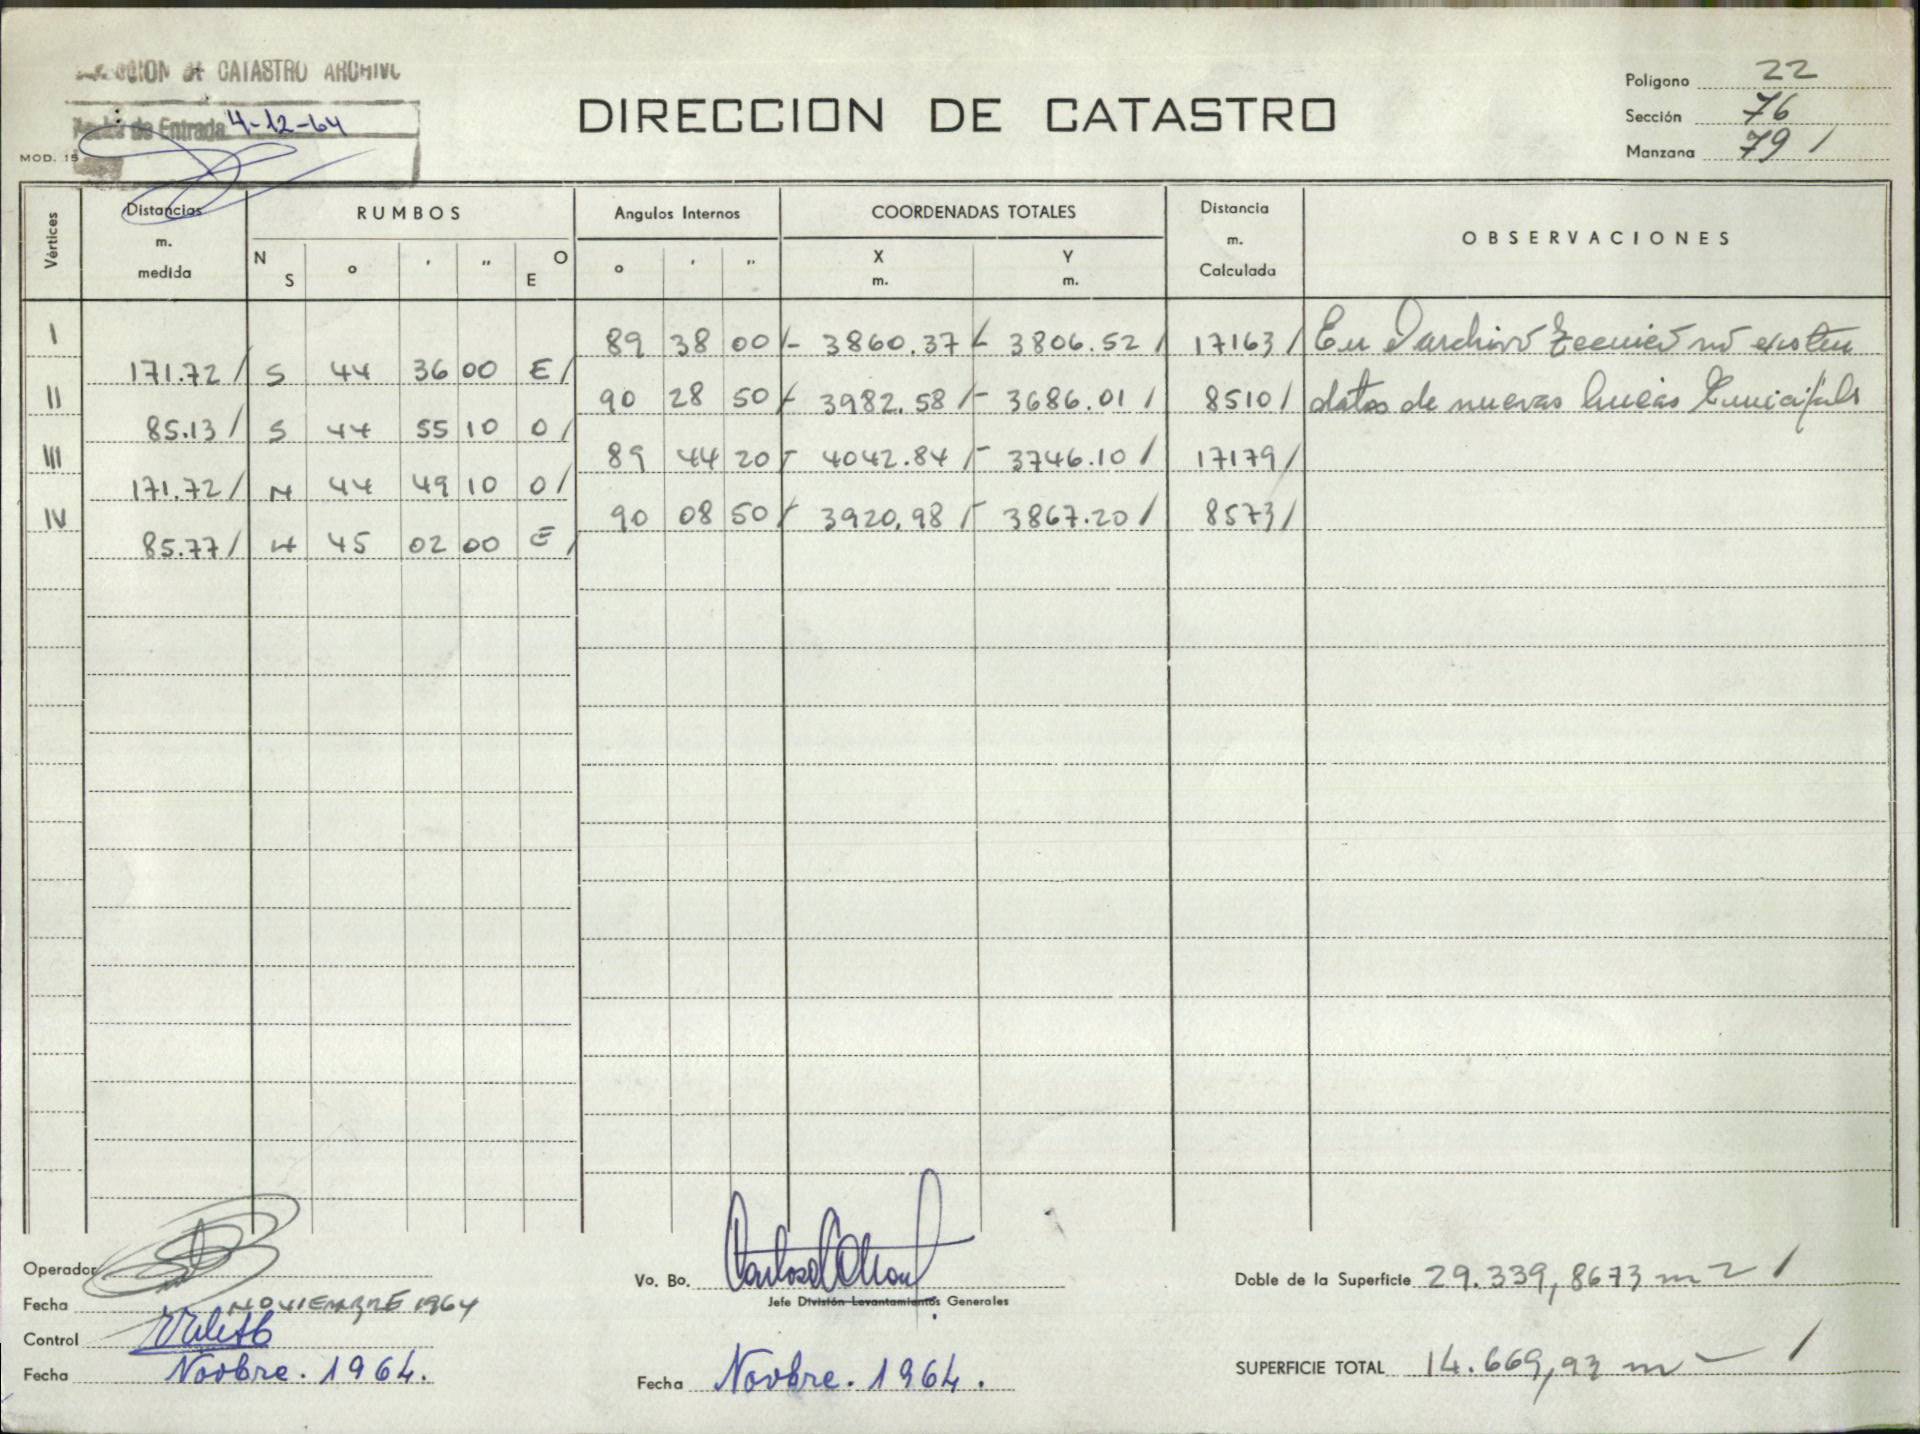 DIRECCION DE CATASTRO ARCHIVO
Fecha de Entrada 4-12-64
MOD. 15
DIRECCION DE CATASTRO
Polígono 22
Sección 76
Manzana 79 /
Vértices
Distancias m. medida
RUMBOS
N S o ' " O E
Angulos Internos
o ' "
COORDENADAS TOTALES
X m. Y m.
Distancia m. Calculada
OBSERVACIONES
I 89 38 00 /- 3860.37 /- 3806.52 / 17163 / En archivo técnico no existen
171.72 / S 44 36 00 E /
II 90 28 50 /- 3982.58 /- 3686.01 / 8510 / datos de nuevas líneas Municipales
85.13 / S 44 55 10 O /
III 89 44 20 /- 4042.84 /- 3746.10 / 17179 /
171.72 / N 44 49 10 O /
IV 90 08 50 /- 3920.98 /- 3867.20 / 8573 /
85.77 / N 45 02 00 E /
Operador
Fecha NOVIEMBRE 1964
Control
Fecha Novbre. 1964.
Vo. Bo.
Jefe División Levantamientos Generales
Fecha Novbre. 1964.
Doble de la Superficie 29.339,8673 m2 /
SUPERFICIE TOTAL 14.669,93 m2 /